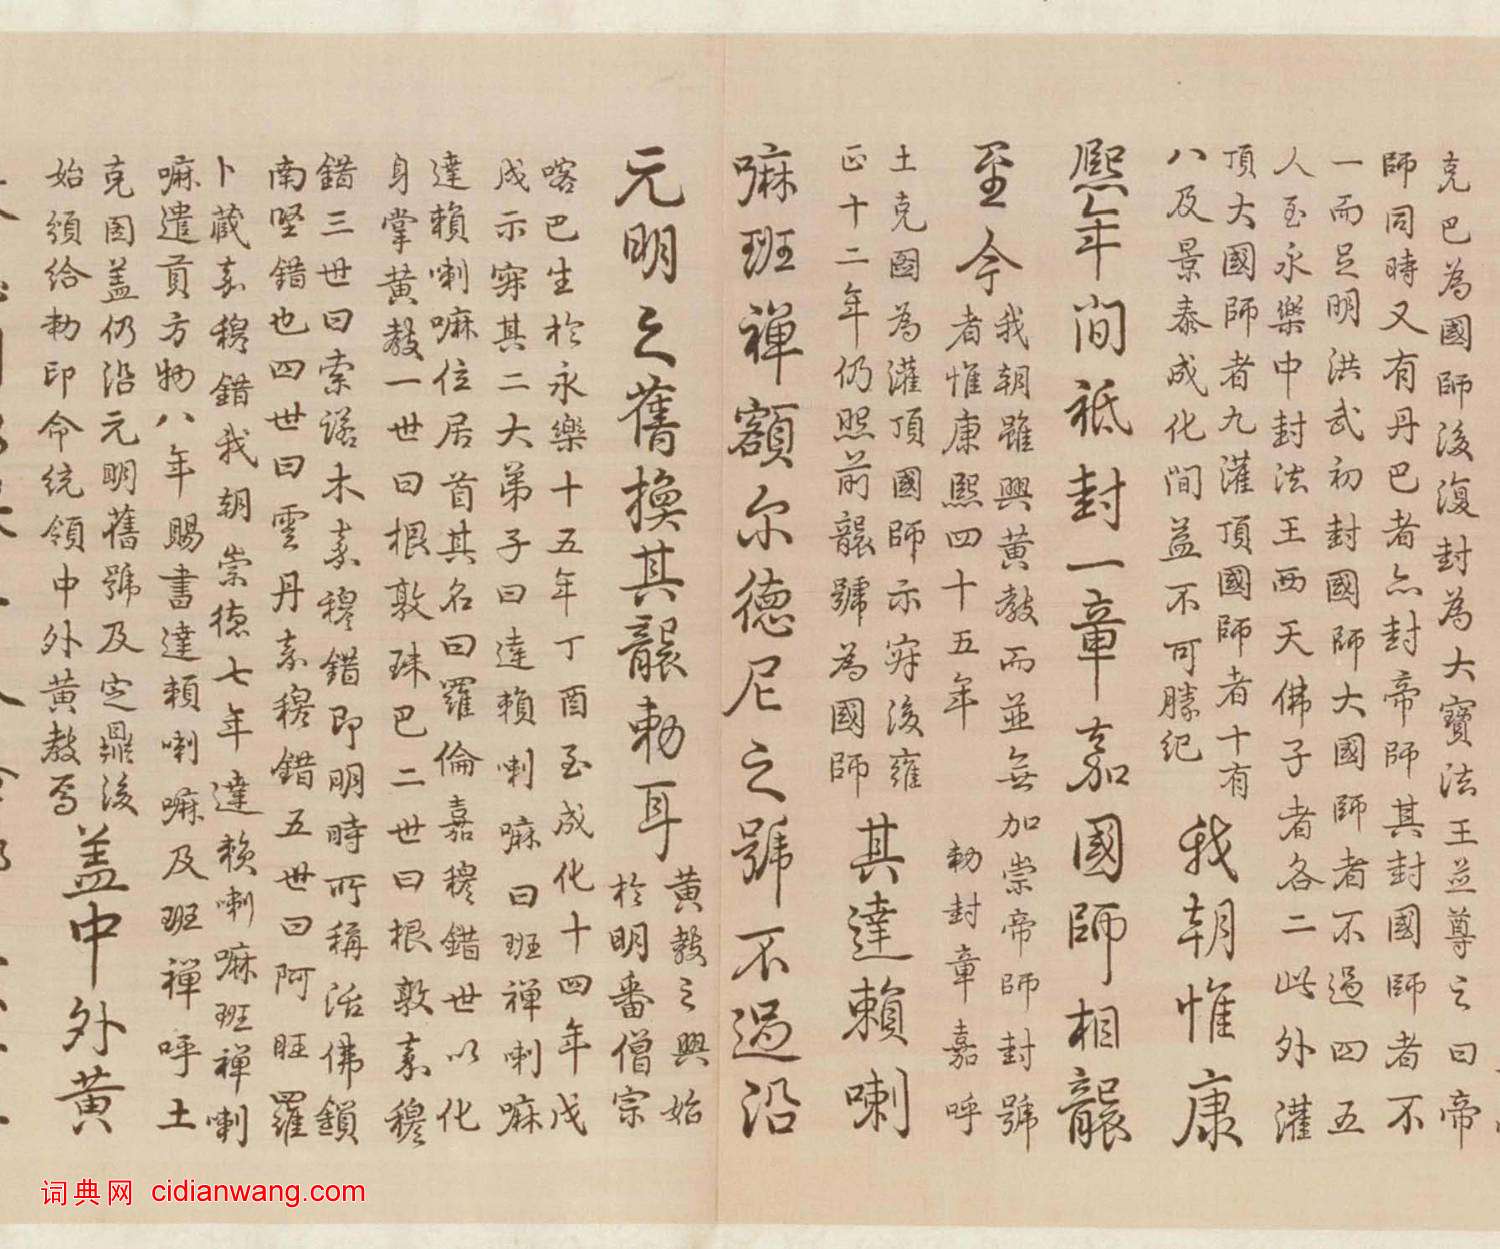 克巴為國師後復封為大寶法王並尊之曰帝
師同時又有丹巴者亦封帝師其封國師者不
一而足明洪武初封國師大國師者不過四五
人至永樂中封法王西天佛子者各二此外灌
頂大國師者九灌頂國師者十有
八及景泰成化間益不可勝紀
我朝惟康
熙年間祗封一章嘉國師相襲
至今
我朝雖興黃教而並無加崇帝師封號
者惟康熙四十五年 勅封章嘉呼
土克圖為灌頂國師示寂後雍
正十二年仍照前襲號為國師
其達賴喇
嘛班禪額尔德尼之號不過沿
元明之舊換其襲勅耳
黃教之興始
於明番僧宗
喀巴生於永樂十五年丁酉至成化十四年戊
戌示寂其二大弟子曰達賴喇嘛曰班禪喇嘛
達賴喇嘛位居首其名曰羅倫嘉穆錯世以化
身掌黃教一世曰根敦珠巴二世曰根敦嘉穆
錯三世曰索諾木嘉穆錯即明時所稱活佛鎖
南堅錯也四世曰雲丹嘉穆錯五世曰阿旺羅
卜藏嘉穆錯我朝崇德七年達賴喇嘛班禪喇
嘛遣貢方物八年賜書達賴喇嘛及班禪呼土
克圖蓋仍沿元明舊號及定鼎後
始頒給勅印命統領中外黃教焉
蓋中外黃
词典网 cidianwang.com